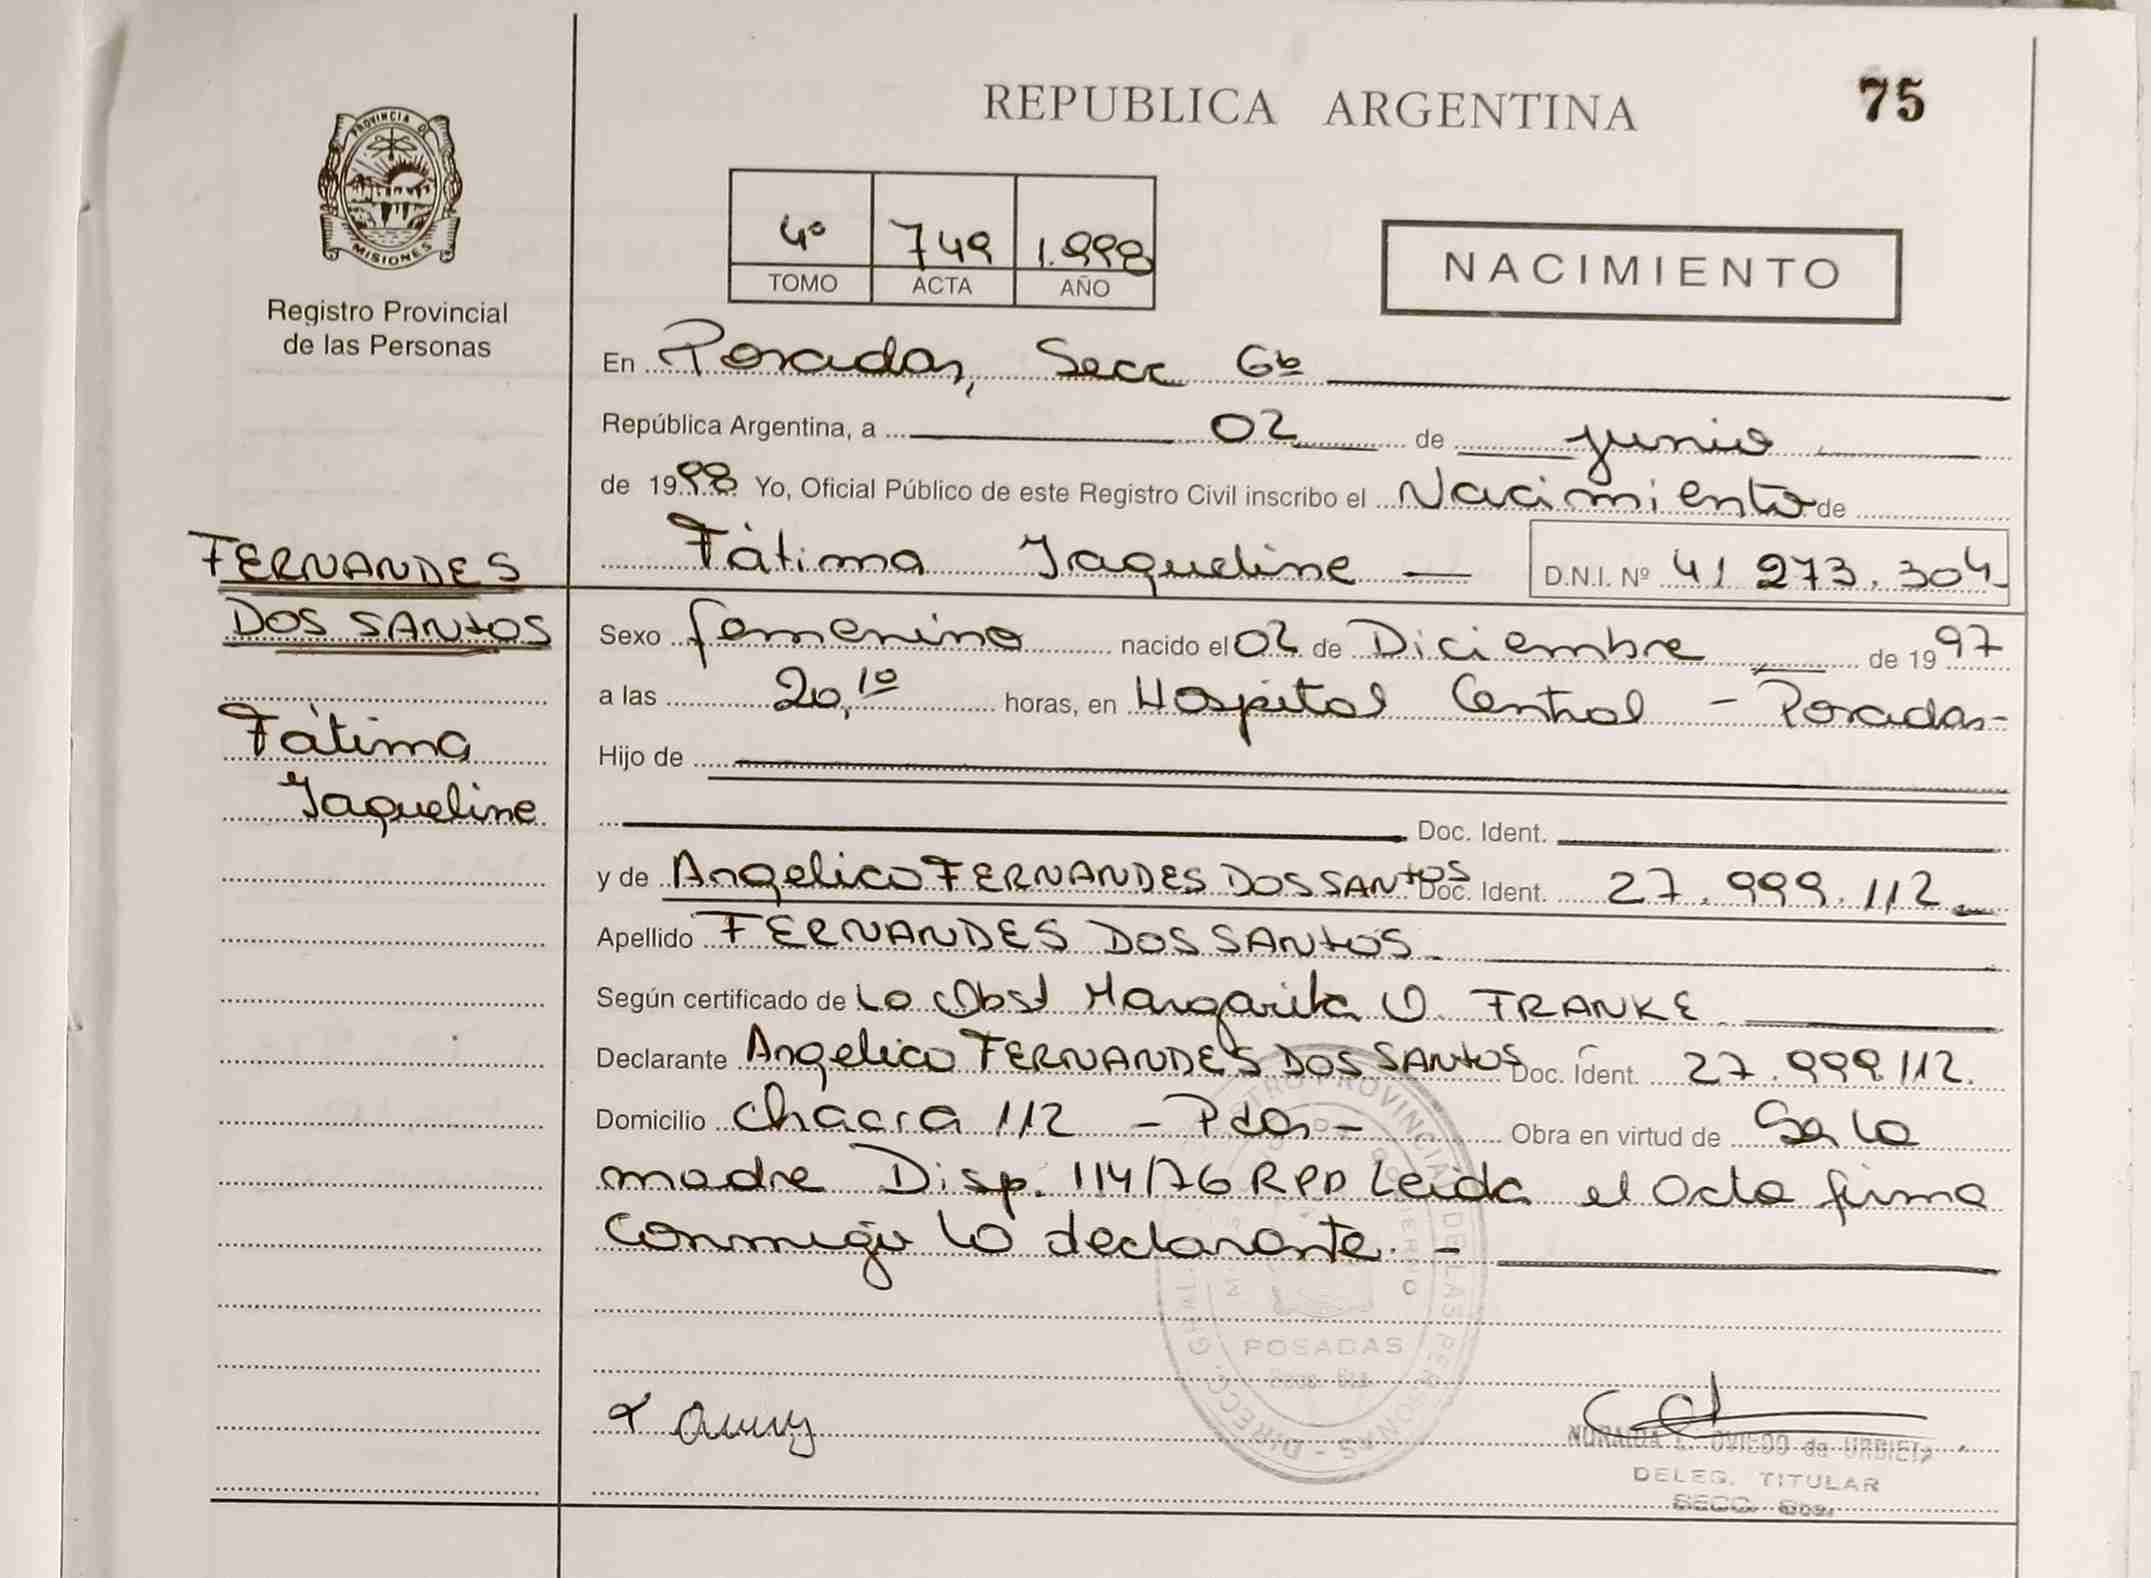 REPUBLICA ARGENTINA
75
PROVINCIA DE
MISIONES
Registro Provincial
de las Personas
4º 749 1.998
TOMO ACTA AÑO
NACIMIENTO
En Posadas, Secc 6ª
República Argentina, a 02 de junio
de 1998. Yo, Oficial Público de este Registro Civil inscribo el Nacimiento de
Fátima Jaqueline — D.N.I. Nº 41 273.304
FERNANDES
DOS SANTOS
Fátima
Jaqueline
Sexo femenino nacido el 02 de Diciembre de 1997
a las 20,10 horas, en Hospital Central - Posadas-
Hijo de
Doc. Ident.
y de Angelica FERNANDES DOS SANTOS Doc. Ident. 27.999.112
Apellido FERNANDES DOS SANTOS
Según certificado de La Obst Margarita O. FRANKE
Declarante Angelica FERNANDES DOS SANTOS Doc. Ident. 27.999.112.
Domicilio Chacra 112 - Pdas - Obra en virtud de Ser la
madre Disp. 114/76 RPP Leida el acta firma
conmigo la declarante. -
POSADAS
NORAIDA E. OVIEDO de URBIETA
DELEG. TITULAR
SECC.